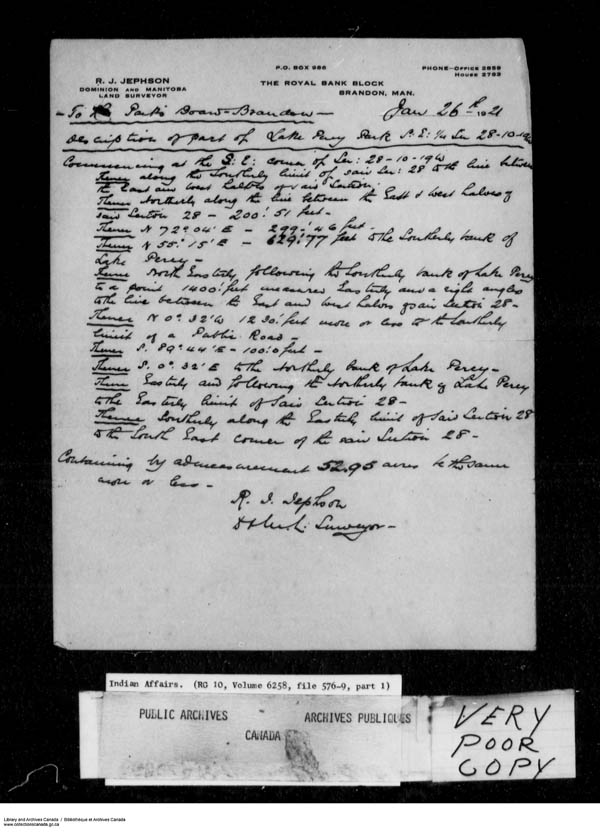 P.O. BOX 986
PHONE-OFFICE 2859
HOUSE 2793
R. J. JEPHSON
DOMINION AND MANITOBA
LAND SURVEYOR
THE ROYAL BANK BLOCK
BRANDON, MAN.
To the Parks Board - Brandon - Jan 26th 1921
Description of part of Lake Percy Park S.E. 1/4 Sec 28-10-19W
Commencing at the S.E. corner of Sec: 28-10-19W
Thence along the Southerly limit of said Sec: 28 to the line between
the East and West halves of said Section.
Thence Northerly along the line between the East & West halves of
said Section 28 - 200.' 51 feet -
Thence N 72° 04' E - 299.' 46 feet -
Thence N 55° 15' E - 629.' 77 feet to the Southerly bank of
Lake Percy -
Thence North Easterly following the Southerly bank of Lake Percy
to a point 1400.' feet measured Easterly and at right angles
to the line between the East and West halves of said Section 28 -
Thence N 0° 32' W 1230.' feet more or less to the Southerly
limit of a Public Road -
Thence S. 89° 44' E - 100.'0 feet -
Thence S. 0° 32' E to the Northerly bank of Lake Percy -
Thence Easterly and following the Northerly bank of Lake Percy
to the Easterly limit of said Section 28 -
Thence Southerly along the Easterly limit of said Section 28
to the South East corner of the said Section 28 -
Containing by admeasurement 52.95 acres be the same
more or less -
R. J. Jephson
Surveyor -
Indian Affairs. (RG 10, Volume 6258, file 576-9, part 1)
PUBLIC ARCHIVES ARCHIVES PUBLIQUES
CANADA
VERY
POOR
COPY
Library and Archives Canada / Bibliothèque et Archives Canada
www.collectionscanada.gc.ca